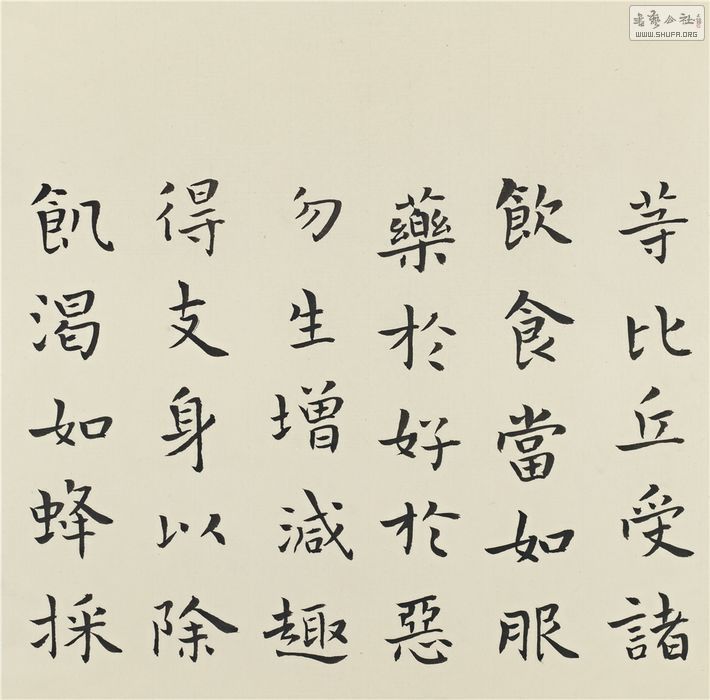 等比丘受諸
飲食當如服
藥於好於惡
勿生增減趣
得支身以除
飢渴如蜂採
書藝公社
WWW.SHUFA.ORG